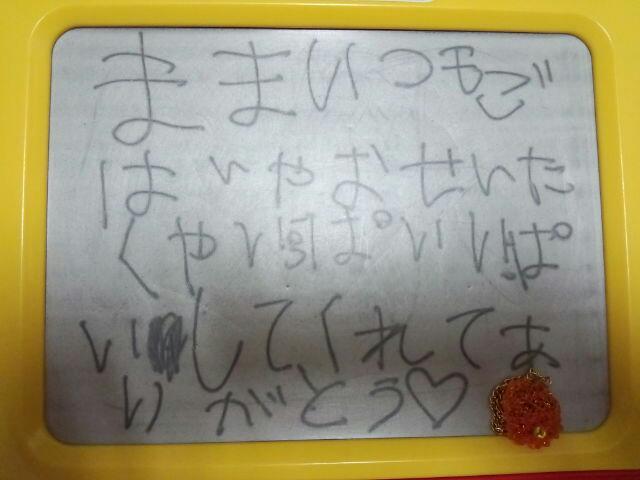 ままいつもご
はいやおせいた
くやいぱいいぱ
いしてくれてあ
りがとう♡